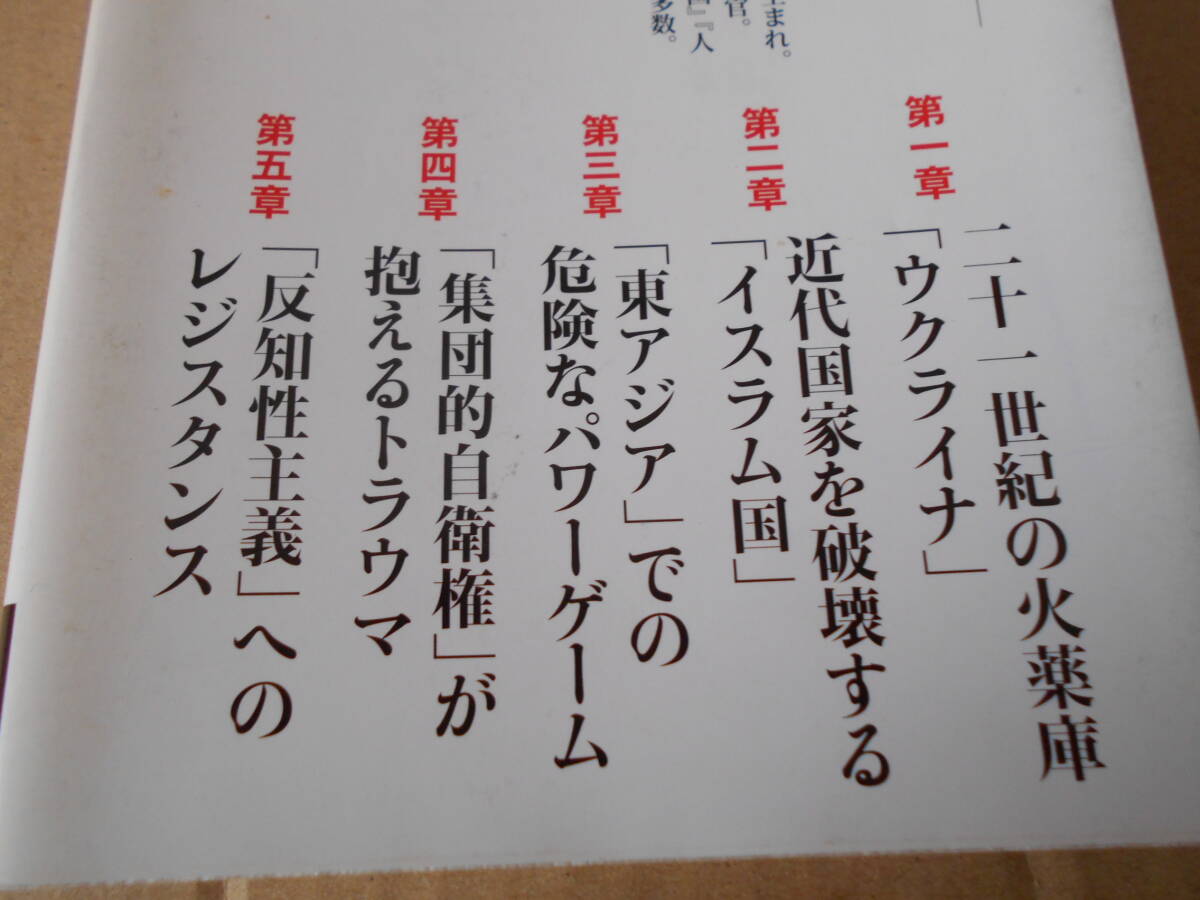 生まれ。
官。
』『人
多数。
第一章
二十一世紀の火薬庫
「ウクライナ」
第二章
近代国家を破壊する
「イスラム国」
第三章
「東アジア」での
危険なパワーゲーム
第四章
「集団的自衛権」が
抱えるトラウマ
第五章
「反知性主義」への
レジスタンス